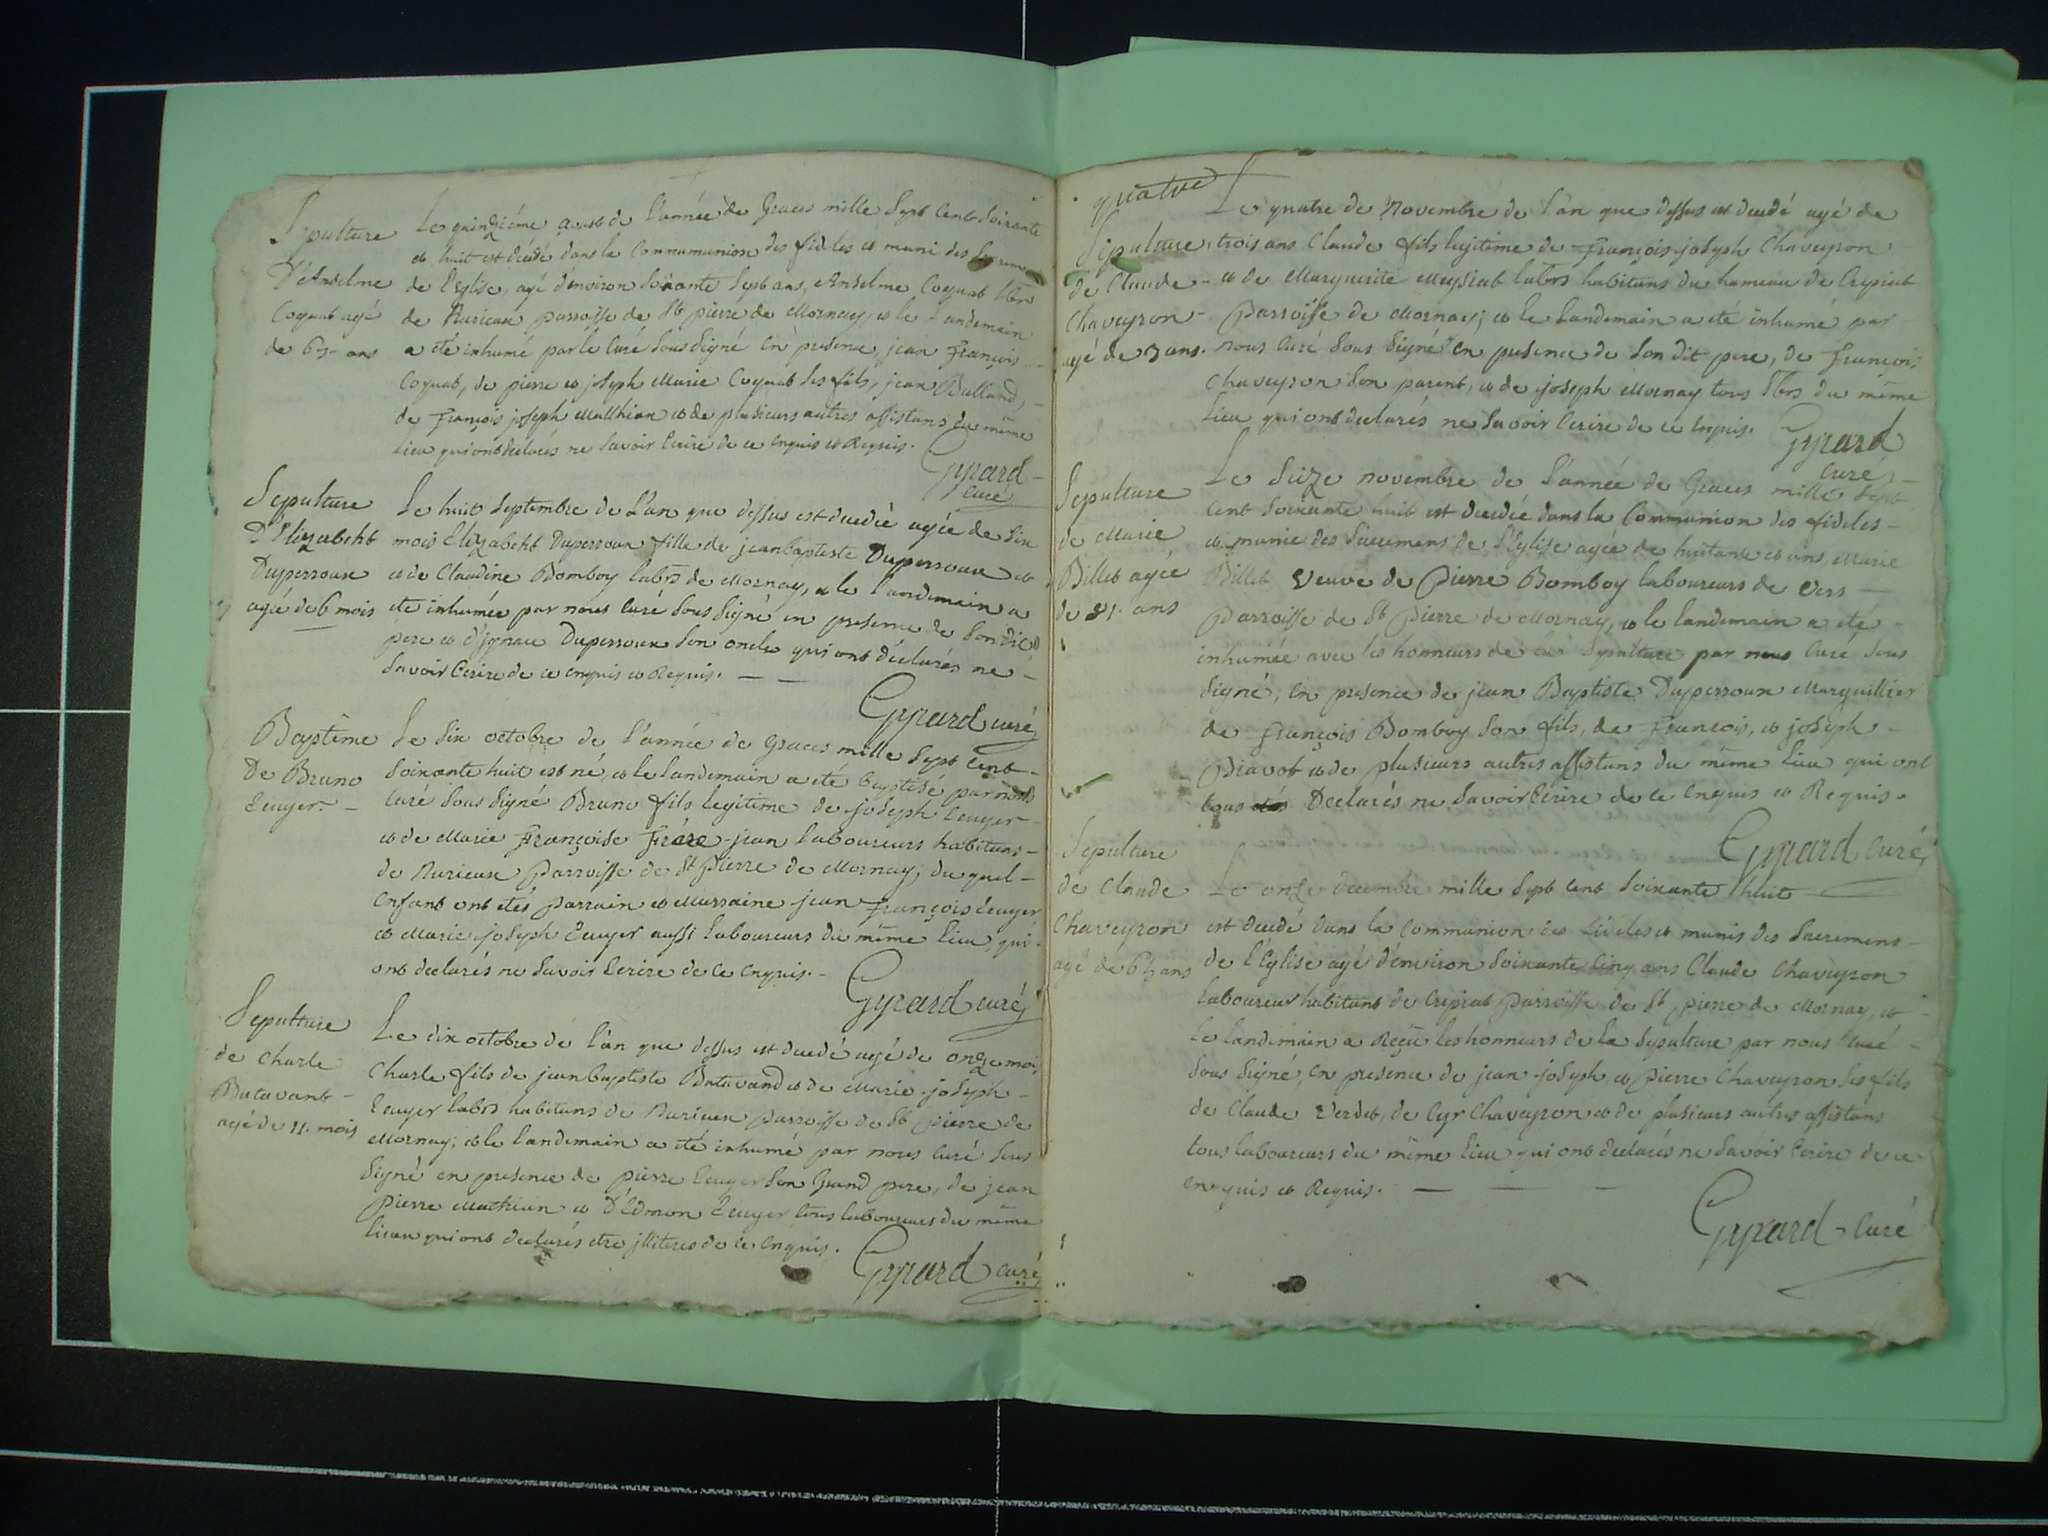 Sepulture
D'Anselme
Coquat agé
de 67 ans
Le quinzième aoust de l'année de Graces mille sept cent soixante
et huit est decédé dans la Communion des fideles et muni des
de l'Eglise, agé d'environ soixante sept ans, Anselme Coquat
de Nurieux parroisse de St pierre de Mornay, et le landemain
a été inhumé par le Curé sous signé en presence, jean François
Coquat, de pierre et joseph Marie Coquat ses fils, jean Balland,
de François joseph Matthian et de plusieurs autres assistans du même
lieu qui ont declarés ne savoir Ecrire de ce enquis et Requis.
Gyrard
curé
Sepulture
D'Elizabeht
Duperroux
agée de 6 mois
Le huit Septembre de L'an que dessus est decedée agée de six
mois Elizabeht Duperroux fille de jean baptiste Duperroux et
et de Claudine Bomboy labrs de Mornay, et le landemain a
été inhumée par nous Curé sous signé en presence de son dit
pere et d'ignace Duperroux son oncle qui ont déclarés ne
savoir Ecrire de ce enquis et Requis.
Gyrard curé
Baptême
De Bruno
Ecuyer
Le six octobre de l'année de Graces mille sept cent
soixante huit est né, et le landemain a été baptisé par nous
curé sous signé Bruno fils legitime de joseph Ecuyer
et de Marie Françoise Frére-jean laboureurs habitans
de Nurieux Parroisse de St Pierre de Mornay; duquel
Enfant ont étés parrain et Marraine jean François Ecuyer
et Marie joseph Ecuyer aussi laboureurs du même lieu, qui
ont declarés ne savoir Ecrire de ce enquis.
Gyrard curé
Sepulture
de Charle
Batavant
agé de 11. mois
Le dix octobre de l'an que dessus est decedé agé de onze mois
Charle fils de jean baptiste Batavand et de Marie joseph
Ecuyer labrs habitans de Nurieux parroisse de St pierre de
Mornay; et le landemain a été inhumé par nous Curé sous
signé en presence de pierre Ecuyer son Grand pere, de jean
Pierre Mathian et D'Edmon Ecuyer tous laboureurs du même
lieu qui ont declarés etre illiteres de ce enquis.
Gyrard curé
quatre
Sepulture
de Claude
Chaveyron
agé de 3 ans.
Le quatre de Novembre de l'an que dessus est decedé agé de
trois ans Claude fils legitime de François-joseph Chaveyron
et de Marguerite Meyssiat labrs habitans du hameau de Crepiat
Parroisse de Mornay; et le landemain a été inhumé par
nous Curé sous signé en presence de son dit pere, de François
Chaveyron son parent, et de joseph Mornay tous lbrs du même
lieu qui ont declarés ne savoir Ecrire de ce Enquis.
Gyrard
curé
Sepulture
de Marie
Billet agée
de 81. ans
Le seize novembre de l'année de Graces mille sept
cent soixante huit est decedée dans la Communion des fideles
et munie des Sacremens de l'Eglise agée de huitante et un ans Marie
Billet Veuve de Pierre Bomboy laboureurs de Vers
Parroisse de St Pierre de Mornay, et le landemain a été
inhumée avec les honneurs de la Sepulture par nous Curé sous
signé, en presence de jean Baptiste Duperroux Marguillier
de François Bomboy son fils, de François, et joseph
Pravot et de plusieurs autres assistans du même lieu qui ont
tous Declarés ne savoir Ecrire de ce enquis et Requis.
Gyrard Curé
Sepulture
de Claude
Chaveyron
agé de 65 ans
Le onze decembre mille sept cent soixante huit
est decedé dans la Communion des fideles et munis des Sacremens
de l'Eglise agé d'environ soixante cinq ans Claude Chaveyron
laboureur habitant de Crepiat parroisse de St pierre de Mornay, et
le landemain a Reçu les honneurs de la Sepulture par nous Curé
sous signé, en presence de jean-joseph et pierre Chaveyron ses fils
de Claude Verdet, de Cyr Chaveyron et de plusieurs autres assistans
tous laboureurs du même lieu qui ont declarés ne savoir Ecrire de ce
enquis et Requis.
Gyrard Curé